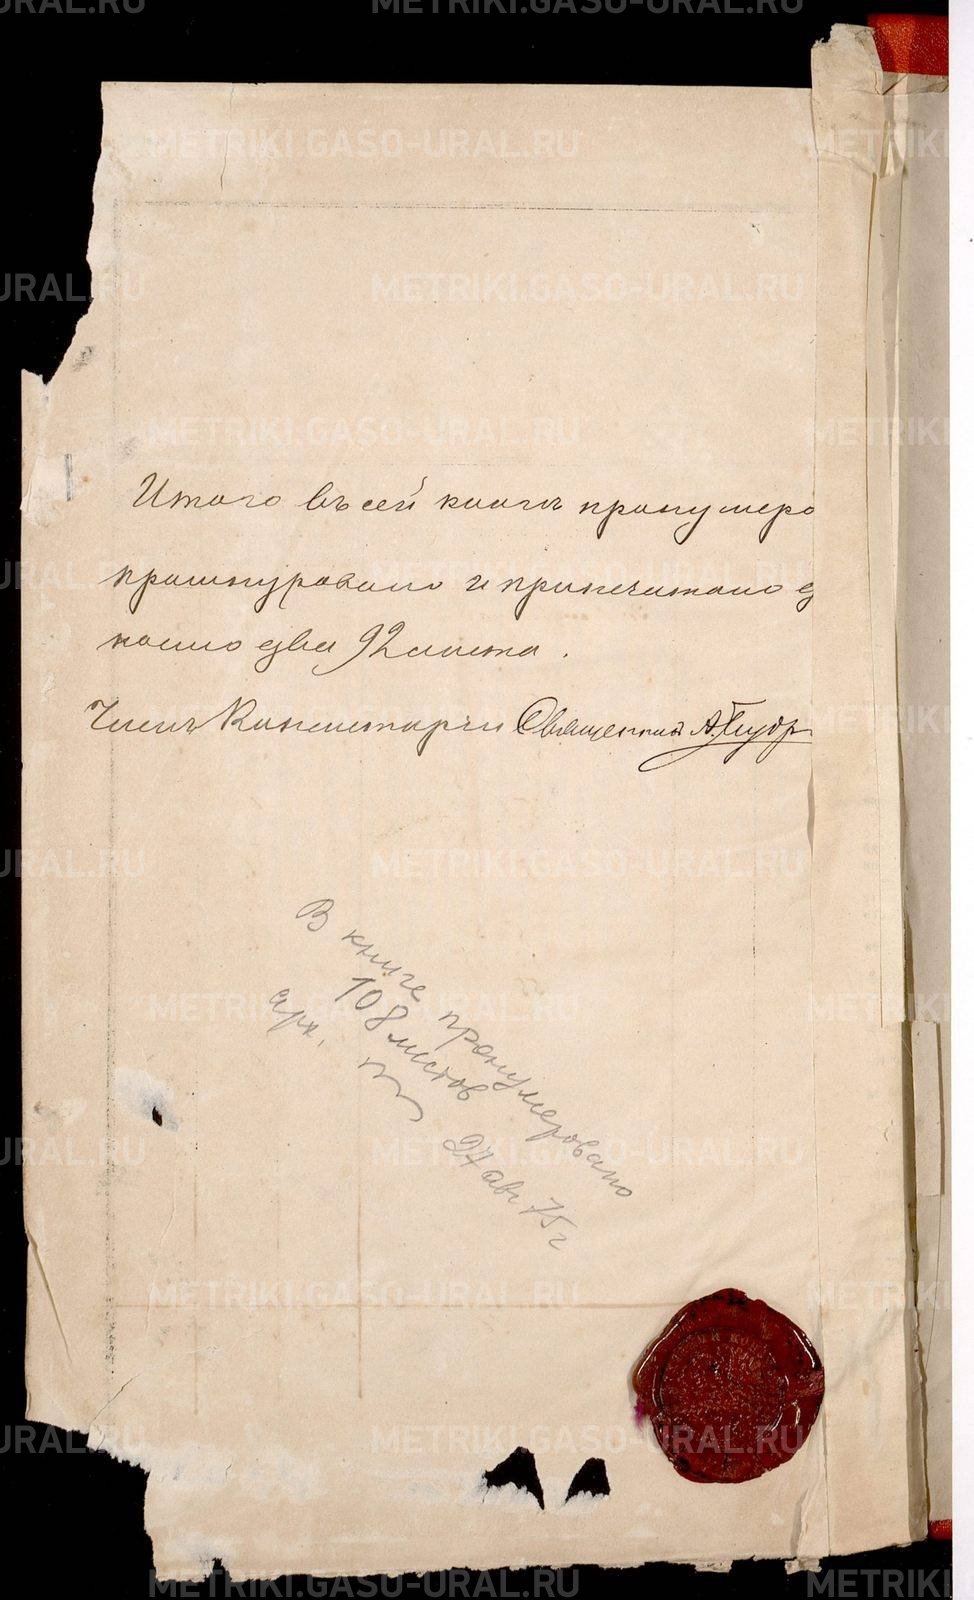 Итого въ сей книгѣ пронумеро
прошнуровано и припечатано д
носто два 92 листа.
Членъ Консисторіи Священникъ А.
В книге пронумеровано
108 листов
арх.
27 авг 75 г
METRIKI.GASO-URAL.RU